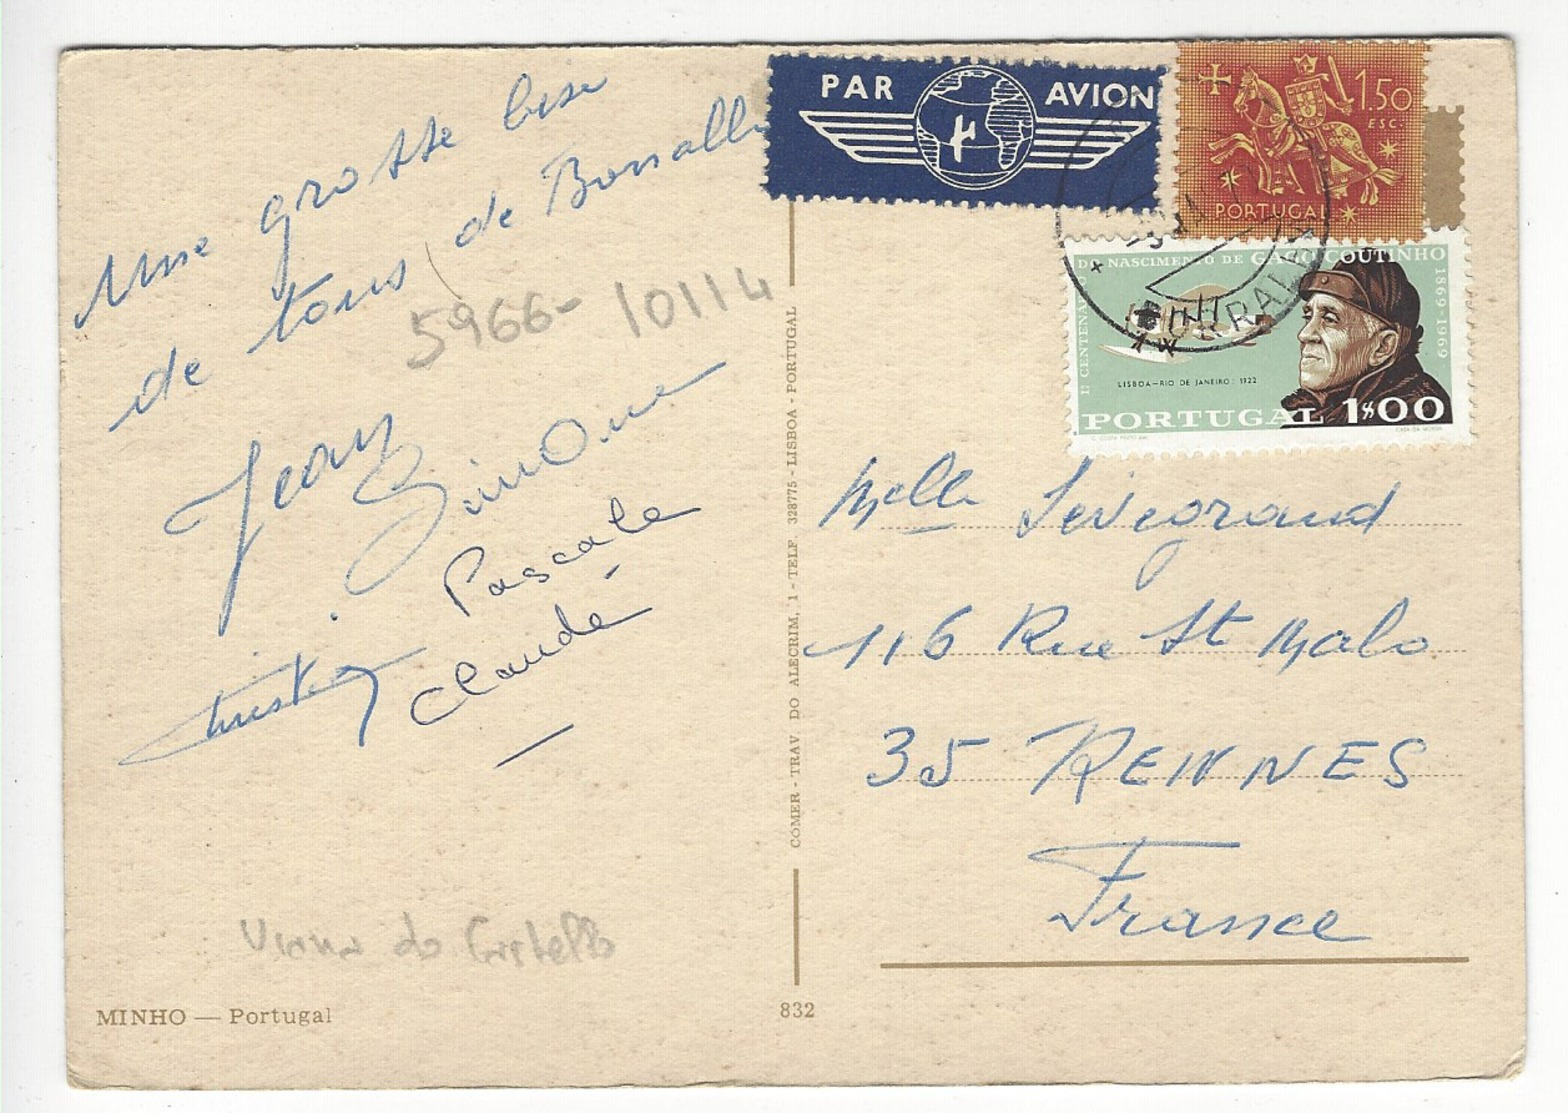 Une grosse bise
de tous de
Jean
Simone
Pascale
Claude
5966- 10114
Viana do Castello
MINHO — Portugal
832
COMER - TRAV. DO ALECRIM, 1 - TELF. 328775 - LISBOA - PORTUGAL
PAR AVION
1.50
ESC.
PORTUGAL
DO NASCIMENTO DE GAGO COUTINHO
1869-1969
1º CENTENÁ
LISBOA—RIO DE JANEIRO: 1922
PORTUGAL 1$00
Melle
116 Rue St Malo
35 RENNES
France